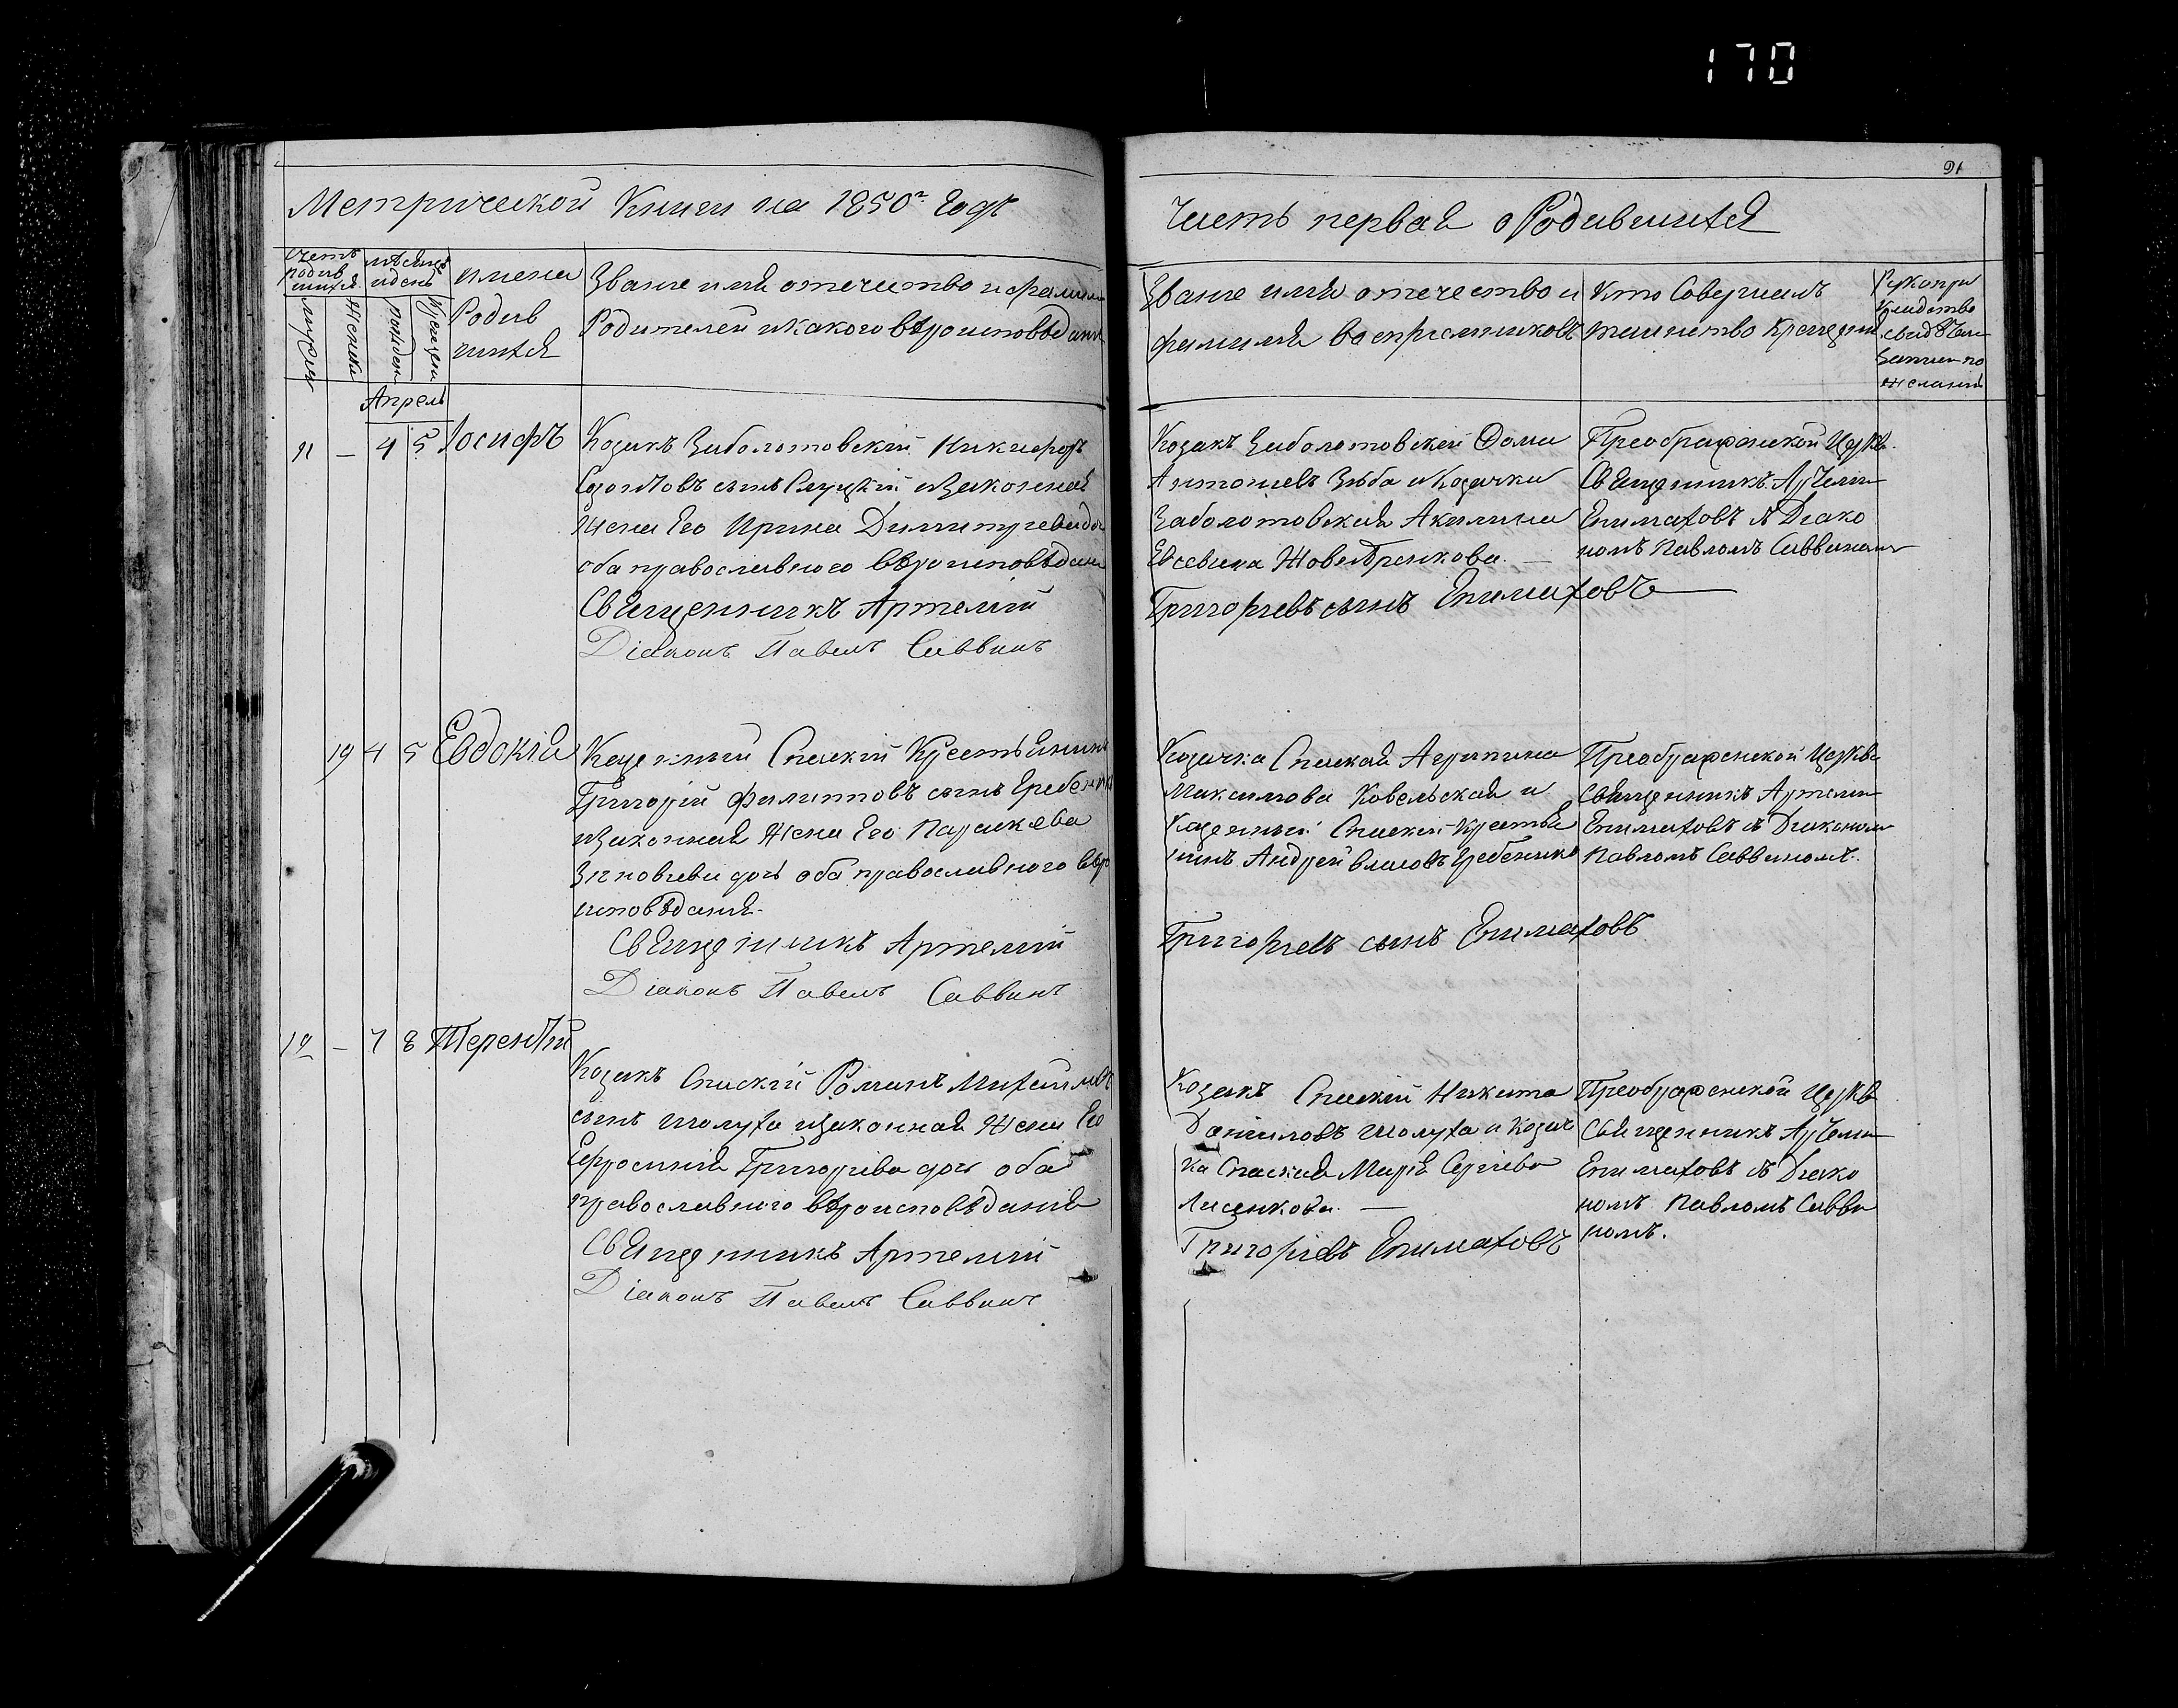 170
91
Метрической Книги на 1850й Годъ
Часть первая о Родившихся
Счетъ родив шихся
мѣсяцъ и день
имена Родив шихся
Званіе имя отечество и фамилія
Родителей и какого вѣроисповѣданія
мужеск
Женска
рожден
Крещен
Званіе имя отечество и
фамилія воспріемниковъ
Кто Совершалъ
таинство крещенія
Рукопри
кладство
свидѣтел
записи по
желанію
Апрель
11 — 4 5 Іосифъ
Козакъ Заболотовскій Никифоръ
сынъ Слуцкій и законная
Жена Его Ирина Димитріева дочь
оба православного вѣроисповѣданія
Священникъ Артемій
Діаконъ Павелъ Саввинъ
Козакъ Заболотовскій Фома
Антоніевъ Зюба и Козачка
Заболотовская Акилина
Евсевіева
Григоріевъ сынъ Епимаховъ
Преображенской Церкви
Священникъ Артемій
Епимаховъ съ Діако
номъ Павломъ Саввиномъ
19 4 5 Евдокія
Казенный Спаскій Крестьянинъ
Григорій Филипповъ сынъ Гребеникъ
и законная Жена Его Параскева
Зиновіева дочь оба православного вѣро
исповѣданія.
Священникъ Артемій
Діаконъ Павелъ Саввинъ
Козачка Спаская Агрипина
Максимова Ковельская и
Казенный Спаскій Крестья
нинъ Андрей Власовъ Гребеникъ
Григоріевъ сынъ Епимаховъ
Преображенской Церкви
Священникъ Артемій
Епимаховъ съ Діакономъ
Павломъ Саввиномъ.
12 — 7 8 Терентій
Козакъ Спаскій Романъ Михайловъ
сынъ Шолуха и законная Жена Его
Ефросинія Григоріева дочь оба
православного вѣроисповѣданія
Священникъ Артемій
Діаконъ Павелъ Саввинъ
Козакъ Спаскій Никита
Даниловъ Шолуха и Козач
ка Спаская Марія Сергіева
Лисенкова. —
Григоріевъ Епимаховъ
Преображенской Церкви
Священникъ Артемій
Епимаховъ съ Діако
номъ Павломъ Савви
номъ.